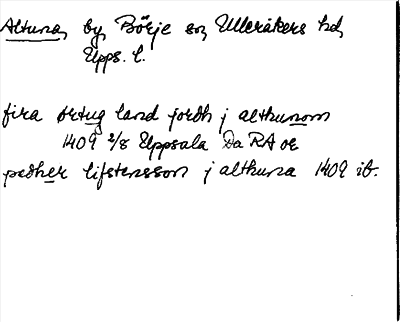 Altuna, by, Börje sn, Ulleråkers hd,
Upps. l.
fira ørtug land jordh j althunom
1409 2/8 Uppsala Da RA or
pædher lifstensson j althuna 1409 ib.